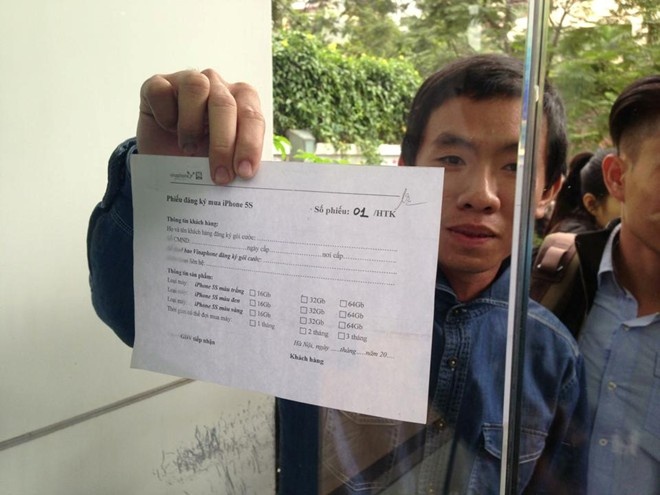 vinaphone
Phiếu đăng ký mua iPhone 5S
Số phiếu: 01 /HTK
Thông tin khách hàng:
Họ và tên khách hàng đăng ký gói cước:
Số CMND: ngày cấp nơi cấp
Số thuê bao Vinaphone đăng ký gói cước:
liên hệ:
Thông tin sản phẩm:
Loại máy: iPhone 5S màu trắng ☐ 16Gb ☐ 32Gb ☐ 64Gb
Loại máy: iPhone 5S màu đen ☐ 16Gb ☐ 32Gb ☐ 64Gb
Loại máy: iPhone 5S màu vàng ☐ 16Gb ☐ 32Gb ☐ 64Gb
Thời gian có thể đợi mua máy: ☐ 1 tháng ☐ 2 tháng ☐ 3 tháng
Hà Nội, ngày .....tháng.....năm 20....
tiếp nhận Khách hàng